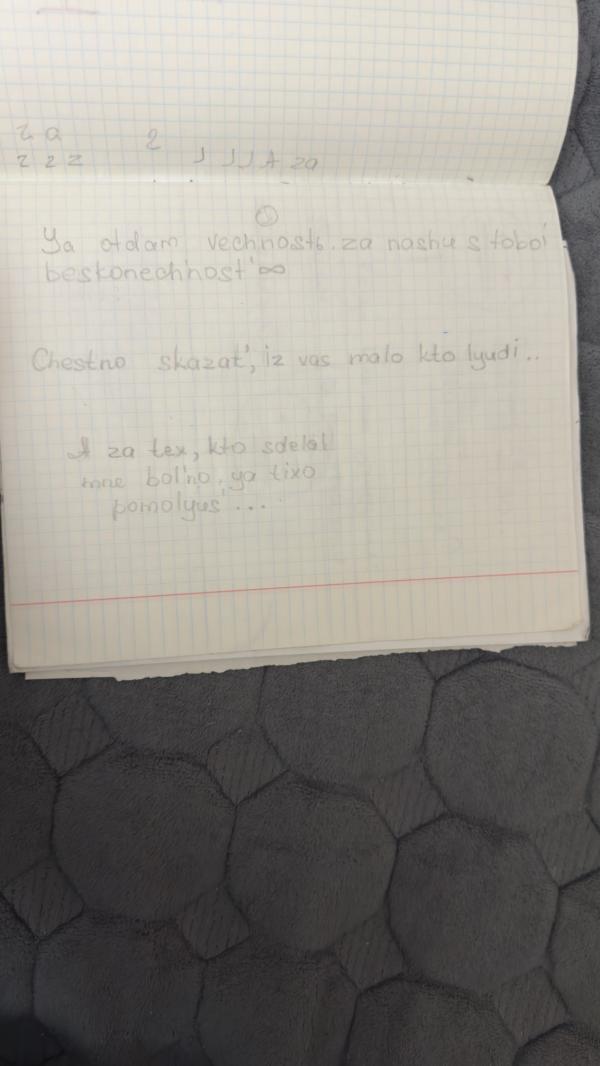 z a 2
z z z J J J A za
①
Ya otdam vechnostь. za nashu s toboi
beskonechnost' ∞
Chestno skazat', iz vas malo kto lyudi..
A za tex, kto sdelal
mne bol'no, ya tixo
pomolyus' ...